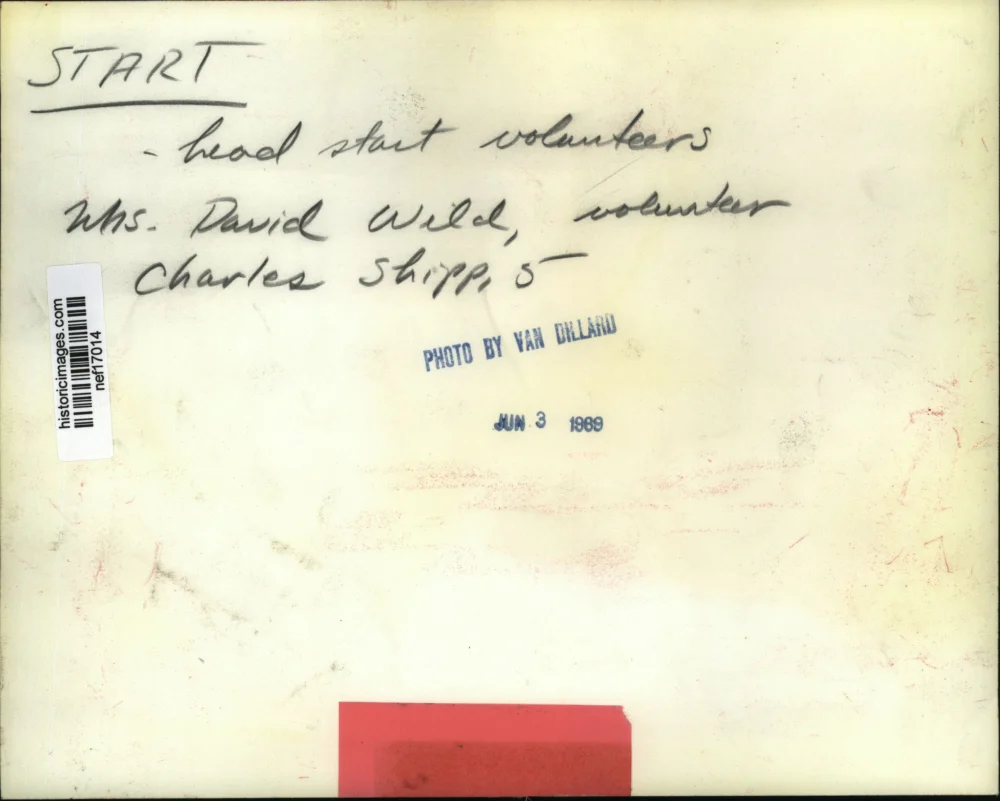 START
- head start volunteers
Mrs. David Wild, volunteer
Charles Shipp, 5
historicimages.com
nef17014
PHOTO BY VAN DILLARD
JUN 3 1969